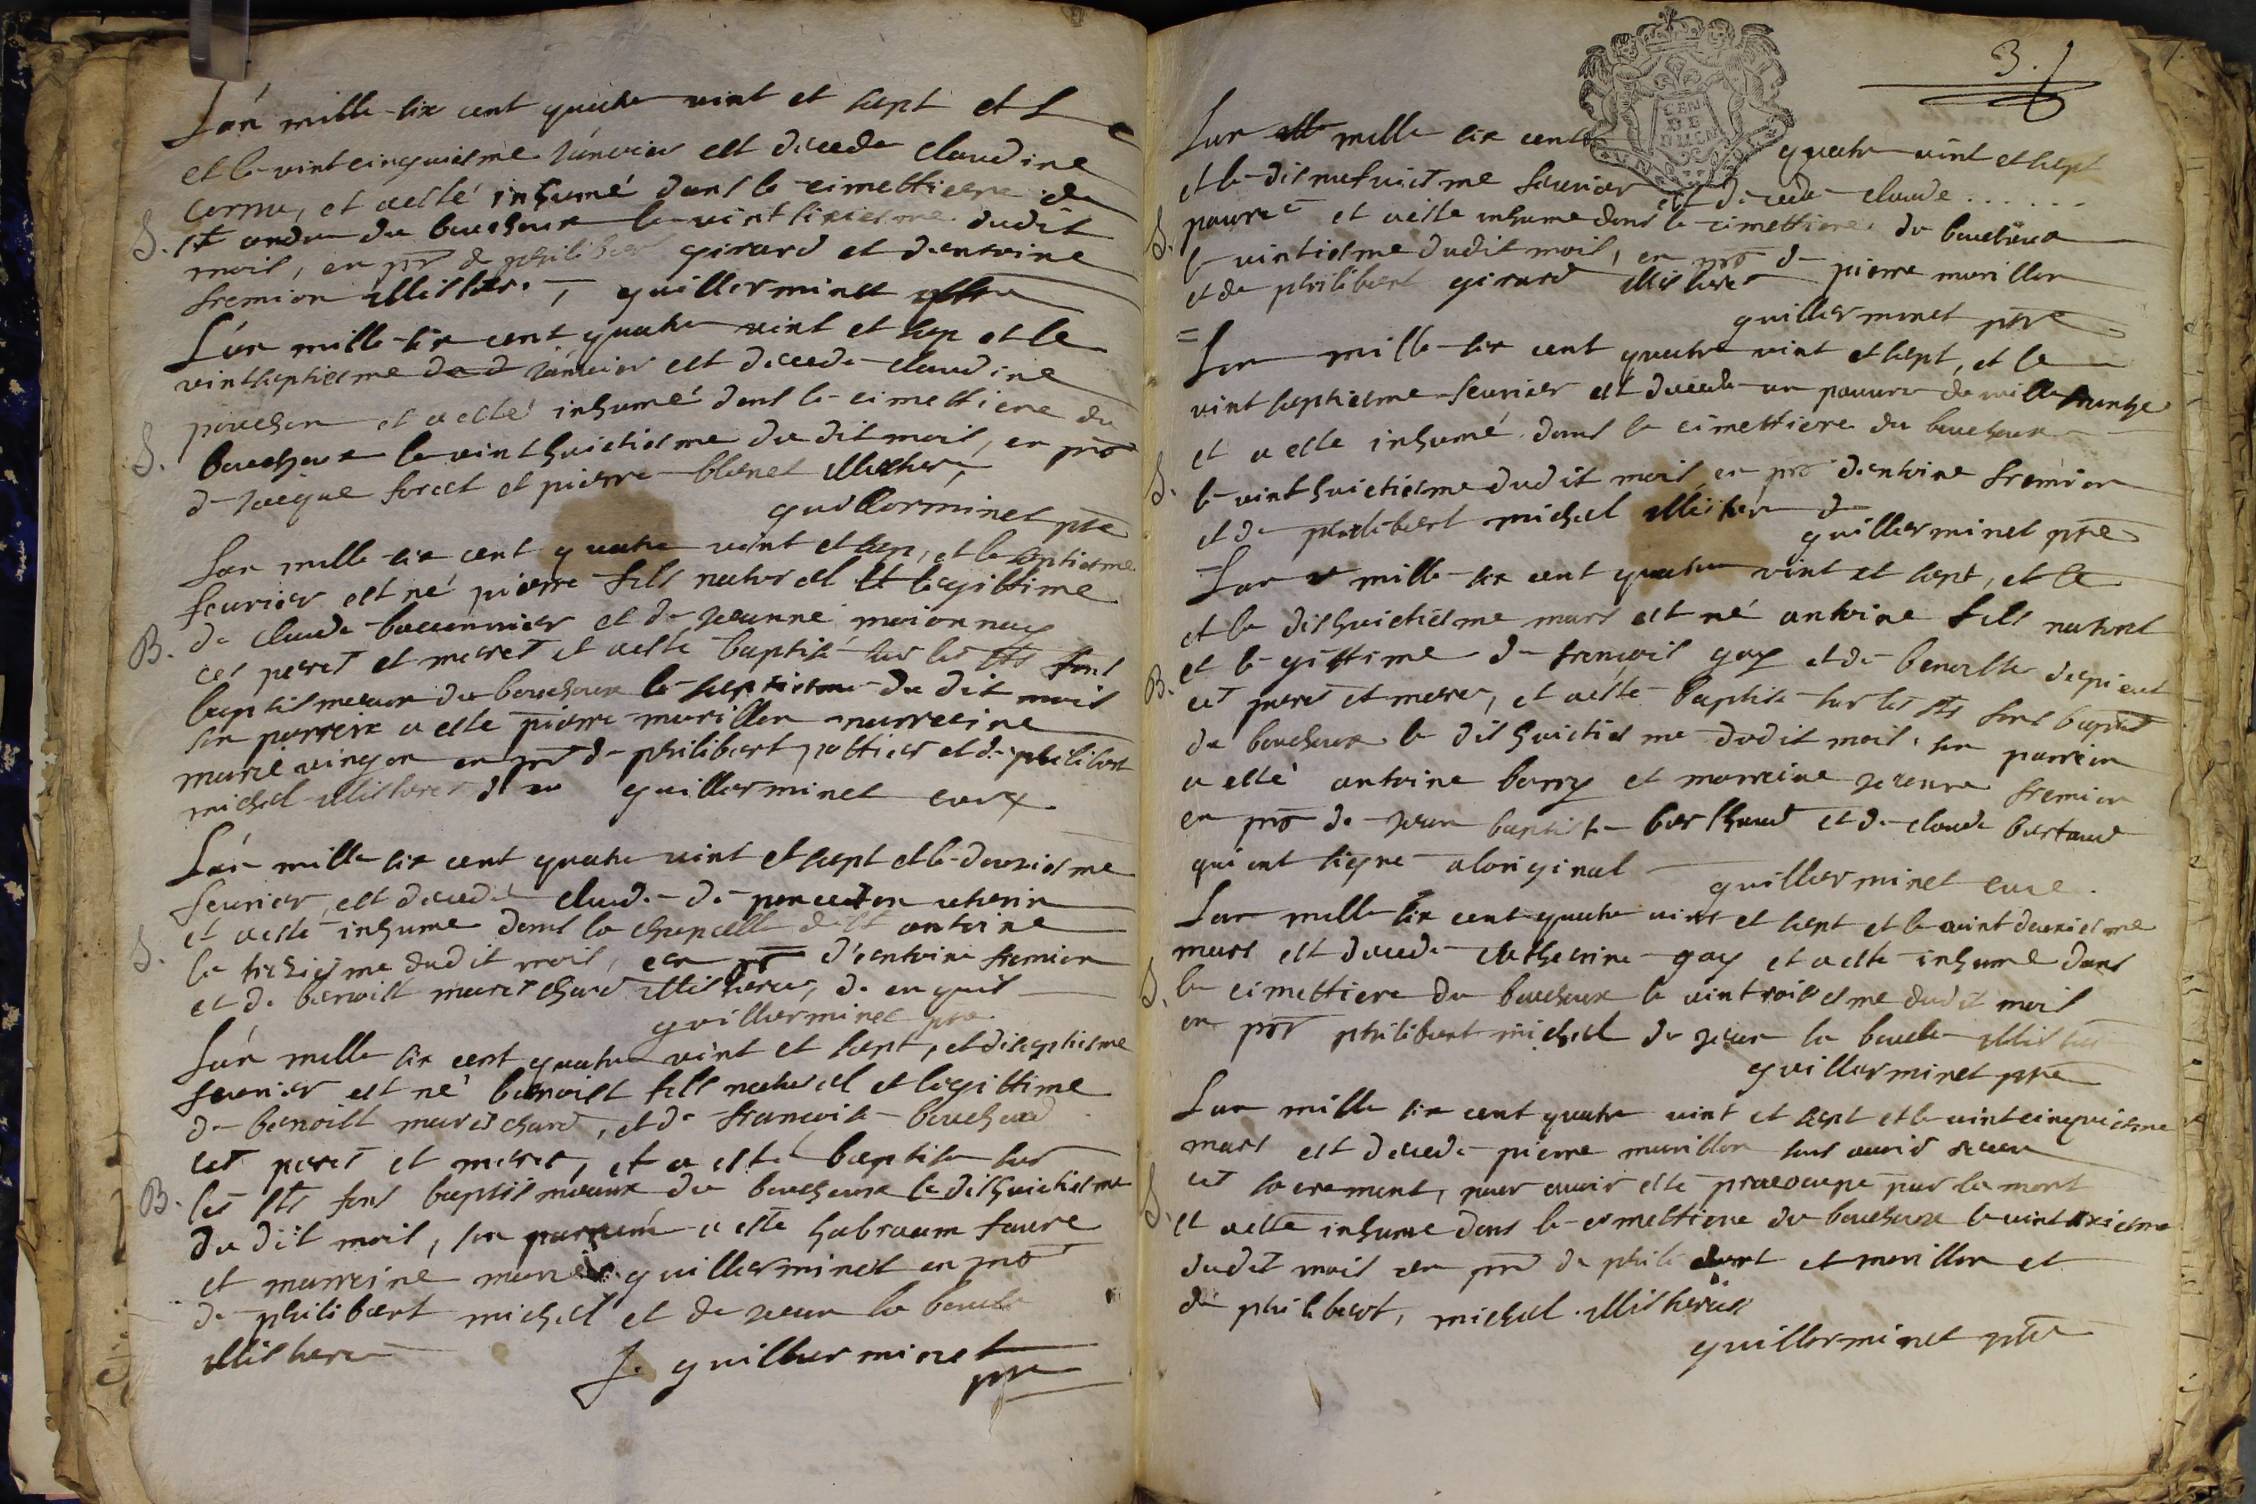 L'an mille six cent quatre vint et sept et le
et le vintcinquiesme Janvier est decede claudine
cornu, et a esté inhumé dans le cimettiere de
S. st andre du bouchoux le vint sixiesme dudit
mois, en pnce de philibert girard et dantoine
fremion illisteres, guillerminet
L'an mille six cent quatre vint et sep et le
vintseptiesme Janvier est decede claudine
pouchon et a esté inhumé dans le cimettiere du
S. bouchoux le vinthuictiesme du dit mois, en pnce
de Jacque forest et pierre blenet illisteres
guillerminet ptre
Lan mille six cent quatre vint et sep, et le septiesme
feurier est né pierre fils naturel et legittime
B. de claude baconnier et de Jeanne moionnay
ces peres et meres et a esté baptisé sur les sts fons
baptismeaux du bouchoux le septiesme du dit mois
son parrein a esté pierre morillon marreine
marie vingon en pnce de philibert pottier et de philibert
michel illisteres guillerminet cure
L'an mille six cent quatre vint et sept et le douziesme
feurier, est decedé claude de
S. et a esté inhume dans la chapelle de st antoine
le treziesme dudit mois, en pnce d'antoine fremion
et de benoist mareschard illisteres, de
guillerminet ptre
L'an mille six cent quatre vint et sept, et diseptiesme
feurier est né benoist fils naturel et legittime
de benoist mareschard, et de francoise bouchard
ces peres et meres, et a esté baptise sur
B. les sts fons baptismeaux du bouchoux le dishuictiesme
du dit mois, son parrein a esté habraam faure
et marreine marie guillerminet en pnce
de philibert michel et de Jean la boucle
illisteres J. guillerminet
ptre
3.
CEN
DE
Lan mille six cent quatre vint et sept
et le disneufuiesme feurier est decede claude ......
S. pauvre et a esté inhume dans le cimettiere du bouchoux
le vintiesme dudit mois, en pnce de pierre morillon
et de philibert girard illisteres
guillerminet ptre
= Lan mille six cent quatre vint et sept, et le
vint septiesme feurier est decede un pauvre de
et a esté inhumé dans le cimettiere du bouchoux
S. le vint huictiesme dudit mois en pnce dantoine fremion
et de philibert michel illisteres
guillerminet ptre
Lan mille six cent quatre vint et sept, et le
et le dishuictiesme mars est né antoine fils naturel
et legittime de francois gay et de benoiste
B. ces peres et meres, et a esté baptise sur les sts fons bapt
du bouchoux le dishuictiesme dudit mois. son parrein
a esté antoine barry et marreine Jeanne fremion
en pnce de Jean baptiste berthaud et de claude bertaud
qui ont signe a loriginal guillerminet cure.
Lan mille six cent quatre vint et sept et le vint deuxiesme
mars est decede catherine gay et a esté inhume dans
S. le cimettiere du bouchoux le vintroisiesme dudit mois
en pnce philibert michel de Jean la boucle illisteres
guillerminet ptre
Lan mille six cent quatre vint et sept et le vintcinquiesme
mars est decede pierre morillon sans avoir receu
S. ces sacrement, pour avoir esté praeocupe par la mort
et a esté inhume dans le cimettiere du bouchoux le vintsixiesme
dudit mois en pnce de philibert et morillon et
de philibert, michel illisteres
guillerminet ptre